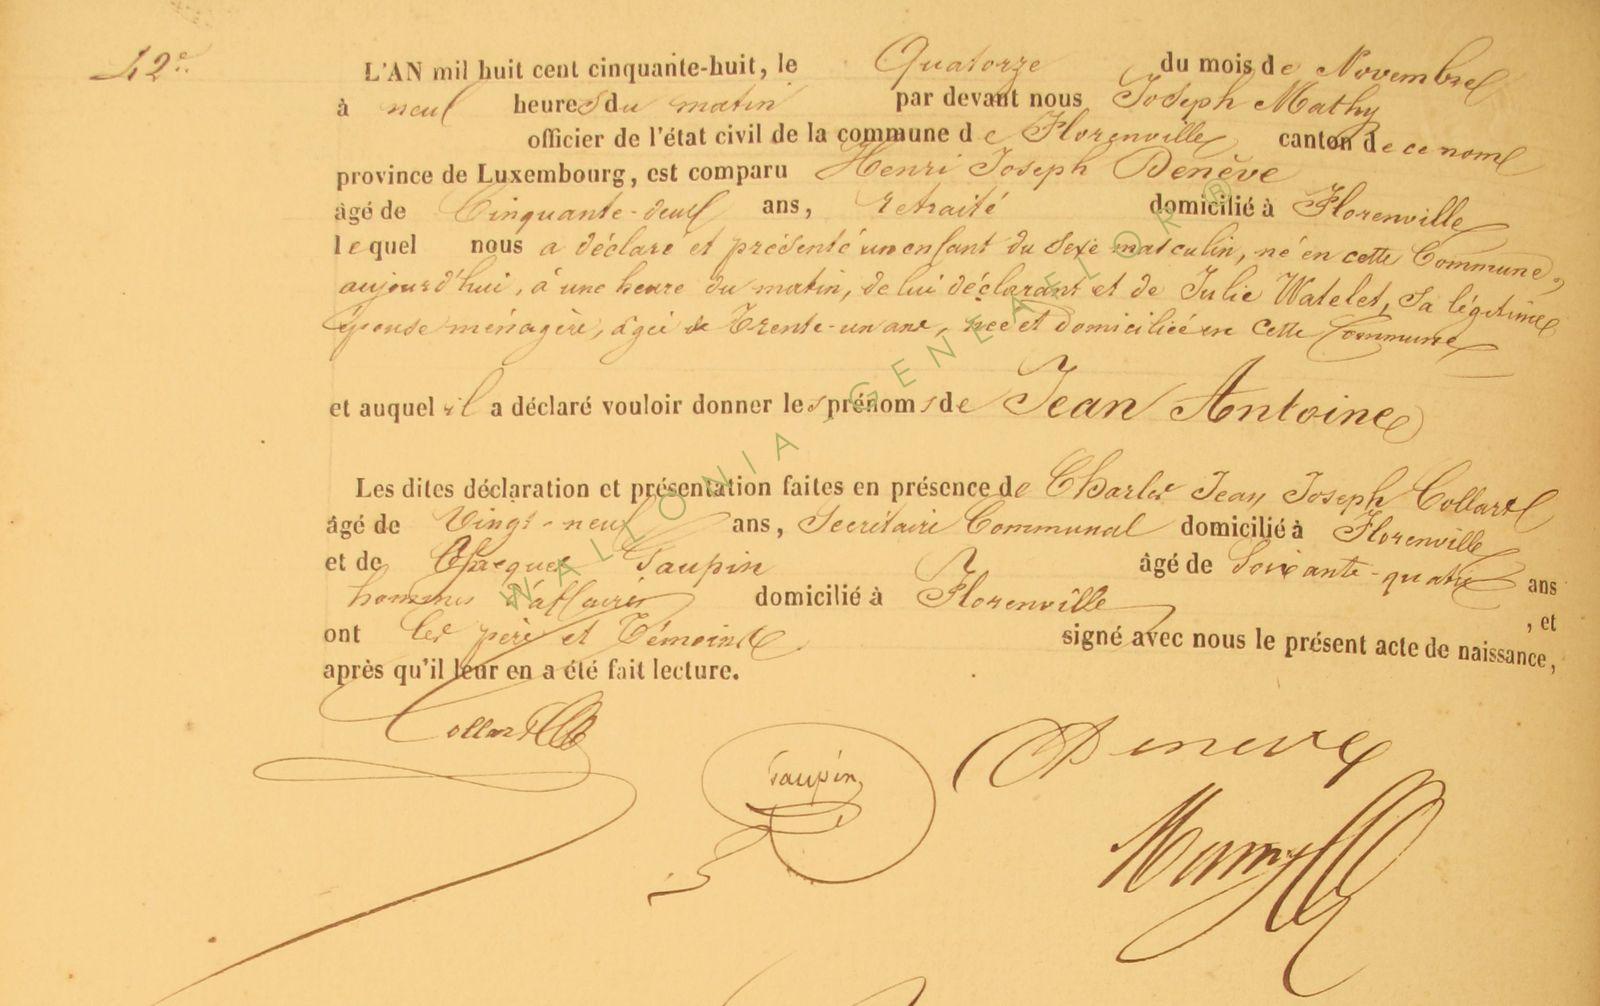 42e.
L'AN mil huit cent cinquante-huit, le Quatorze du mois de Novembre
à neuf heures du matin par devant nous Joseph Mathy
officier de l'état civil de la commune de Florenville canton de ce nom
province de Luxembourg, est comparu Henri Joseph Denève
âgé de Cinquante-deux ans, retraité domicilié à Florenville
lequel nous a déclaré et présenté un enfant du sexe masculin, né en cette Commune,
aujourd'hui, à une heure du matin, de lui déclarant et de Julie Watelet, sa légitime
épouse ménagère, âgée de Trente-un ans, née et domiciliée en cette Commune
et auquel il a déclaré vouloir donner les prénoms de Jean Antoine
Les dites déclaration et présentation faites en présence de Charles Jean Joseph Collart
âgé de Vingt-neuf ans, Secrétaire Communal domicilié à Florenville
et de Jacques Gaupin âgé de Soixante-quatre ans
hommes d'affaires domicilié à Florenville , et
ont les père et Témoins signé avec nous le présent acte de naissance,
après qu'il leur en a été fait lecture.
Collart
Gaupin
Deneve
WALLONIA-GENEALOR®